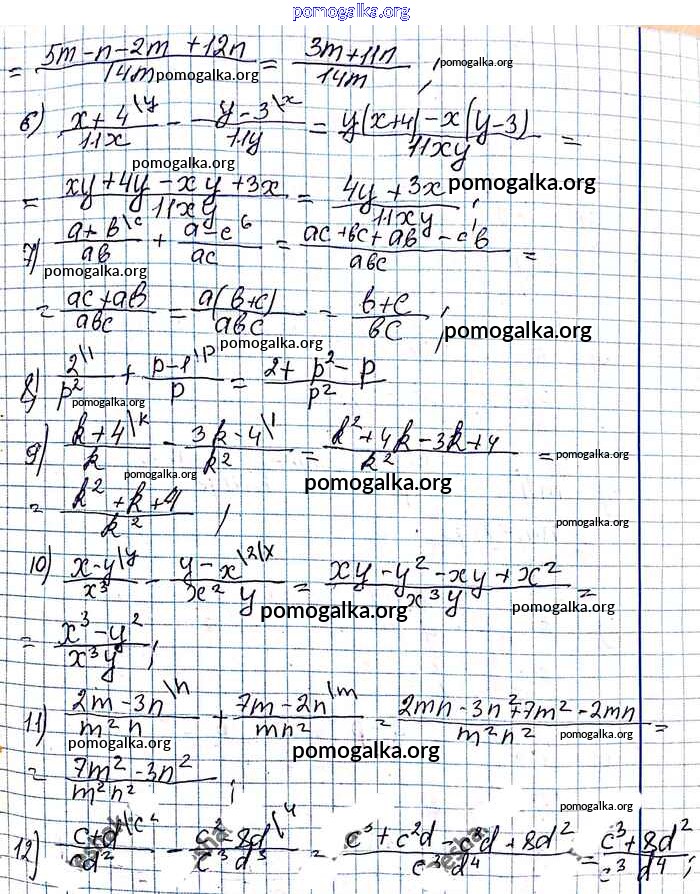 pomogalka.org
= (5m-n-2m+12n)/(14m) = (3m+11n)/(14m) ; pomogalka.org pomogalka.org
6) (x+4\y)/(11x) - (y-3\x)/(11y) = (y(x+4)-x(y-3))/(11xy) =
pomogalka.org
= (xy+4y-xy+3x)/(11xy) = (4y+3x)/(11xy) ; pomogalka.org
7) (a+b\c)/(ab) + (a-c\b)/(ac) = (ac+bc+ab-cb)/(abc) =
pomogalka.org
= (ac+ab)/(abc) = (a(b+c))/(abc) = (b+c)/(bc) ; pomogalka.org
pomogalka.org
8) (2\1)/(p²) + (p-1\p)/(p) = (2+p²-p)/(p²)
pomogalka.org
9) (k+4\k)/(k) - (3k-4\1)/(k²) = (k²+4k-3k+4)/(k²) = pomogalka.org
pomogalka.org pomogalka.org
= (k²+k+4)/(k²) ; pomogalka.org
10) (x-y\y)/(x³) - (y-x\2\x)/(x²y) = (xy-y²-xy+x²)/(x³y) =
pomogalka.org pomogalka.org
= (x³-y²)/(x³y) ;
11) (2m-3n\n)/(m²n) + (7m-2n\m)/(mn²) = (2mn-3n²+7m²-2mn)/(m²n²) =
pomogalka.org pomogalka.org pomogalka.org
= (7m²-3n²)/(m²n²) ;
pomogalka.org
12) (c+d\c²)/(cd²) - (c²-8d\)/(c³d³) = (c³+c²d-c²d+8d²)/(c³d⁴) = (c³+8d²)/(c³d⁴) ;